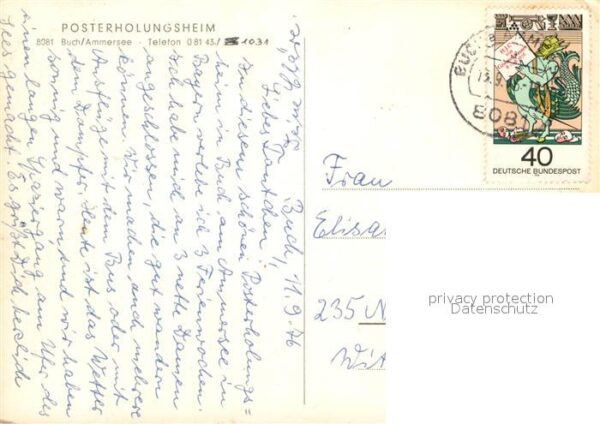 POSTERHOLUNGSHEIM
8081 Buch/Ammersee - Telefon 0 81 43 / 1031
Buch, 11.9.76
Liebes Tantchen!
In diesem schönen Posterholungs=
heim in Buch am Ammersee in
Bayern verlebe ich 3 Ferienwochen.
Ich habe mich an 3 nette Damen
angeschlossen, die gut wandern
können. Wir machen auch mehrere
Ausflüge mit dem Bus oder mit
dem Dampfer. Heute ist das Wetter
sonnig und warm und wir haben
einen langen Spaziergang am Ufer des
Sees gemacht. Es grüßt Dich herzlich
BUCH
13.9.
808
40
DEUTSCHE BUNDESPOST
Frau
Elisa
235 N
Wit
privacy protection
Datenschutz